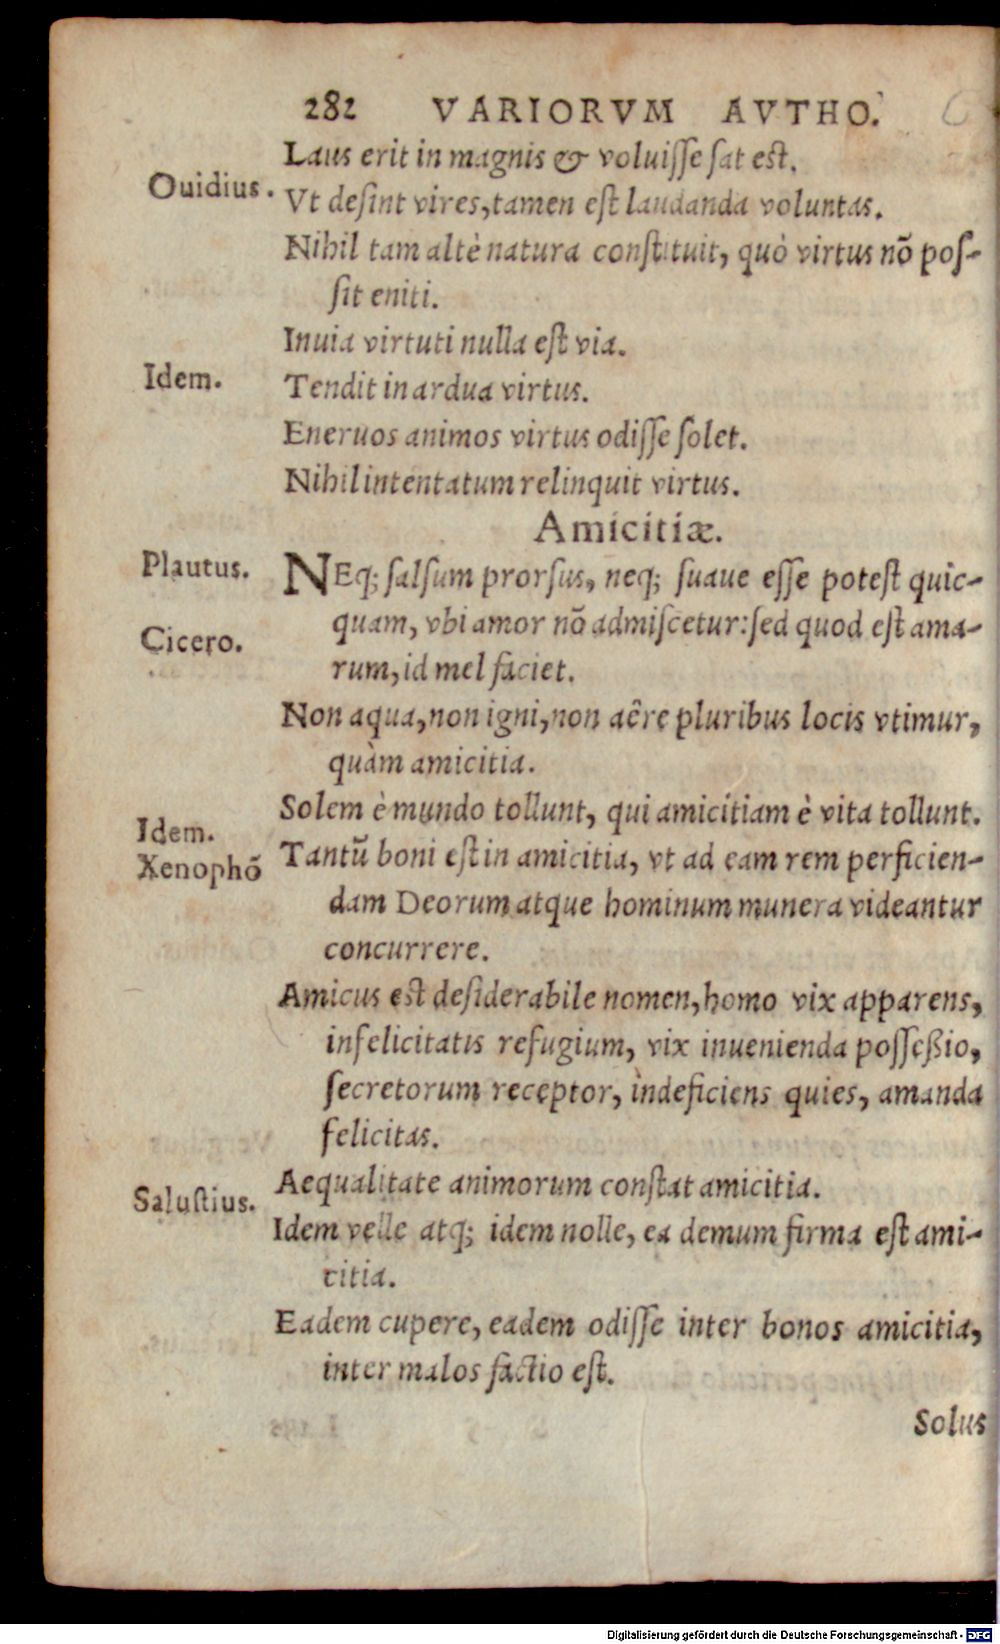 282 VARIORVM AVTHO.
Laus erit in magnis & voluisse sat est.
Ouidius. Vt desint vires, tamen est laudanda voluntas.
Nihil tam altè natura constituit, quò virtus nō pos-
sit eniti.
Inuia virtuti nulla est via.
Idem. Tendit in ardua virtus.
Eneruos animos virtus odisse solet.
Nihil intentatum relinquit virtus.
Amicitiæ.
Plautus. NEq; salsum prorsus, neq; suaue esse potest quic-
quam, vbi amor nō admiscetur: sed quod est ama-
Cicero.
rum, id mel faciet.
Non aqua, non igni, non aêre pluribus locis vtimur,
quàm amicitia.
Solem è mundo tollunt, qui amicitiam è vita tollunt.
Idem.
Xenophō Tantū boni est in amicitia, vt ad eam rem perficien-
dam Deorum atque hominum munera videantur
concurrere.
Amicus est desiderabile nomen, homo vix apparens,
infelicitatis refugium, vix inuenienda posseßio,
secretorum receptor, indeficiens quies, amanda
felicitas.
Aequalitate animorum constat amicitia.
Salustius.
Idem velle atq; idem nolle, ea demum firma est ami-
citia.
Eadem cupere, eadem odisse inter bonos amicitia,
inter malos factio est.
Solus
Digitalisierung gefördert durch die Deutsche Forschungsgemeinschaft - DFG